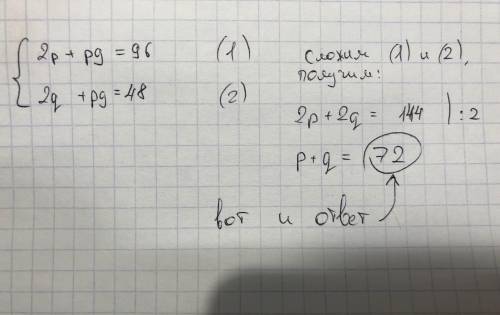 2p + pg = 96 (1)
2q + pg = 48 (2)
Сложим (1) и (2),
получим:
2p + 2q = 144 | : 2
p + q = 72
вот и ответ